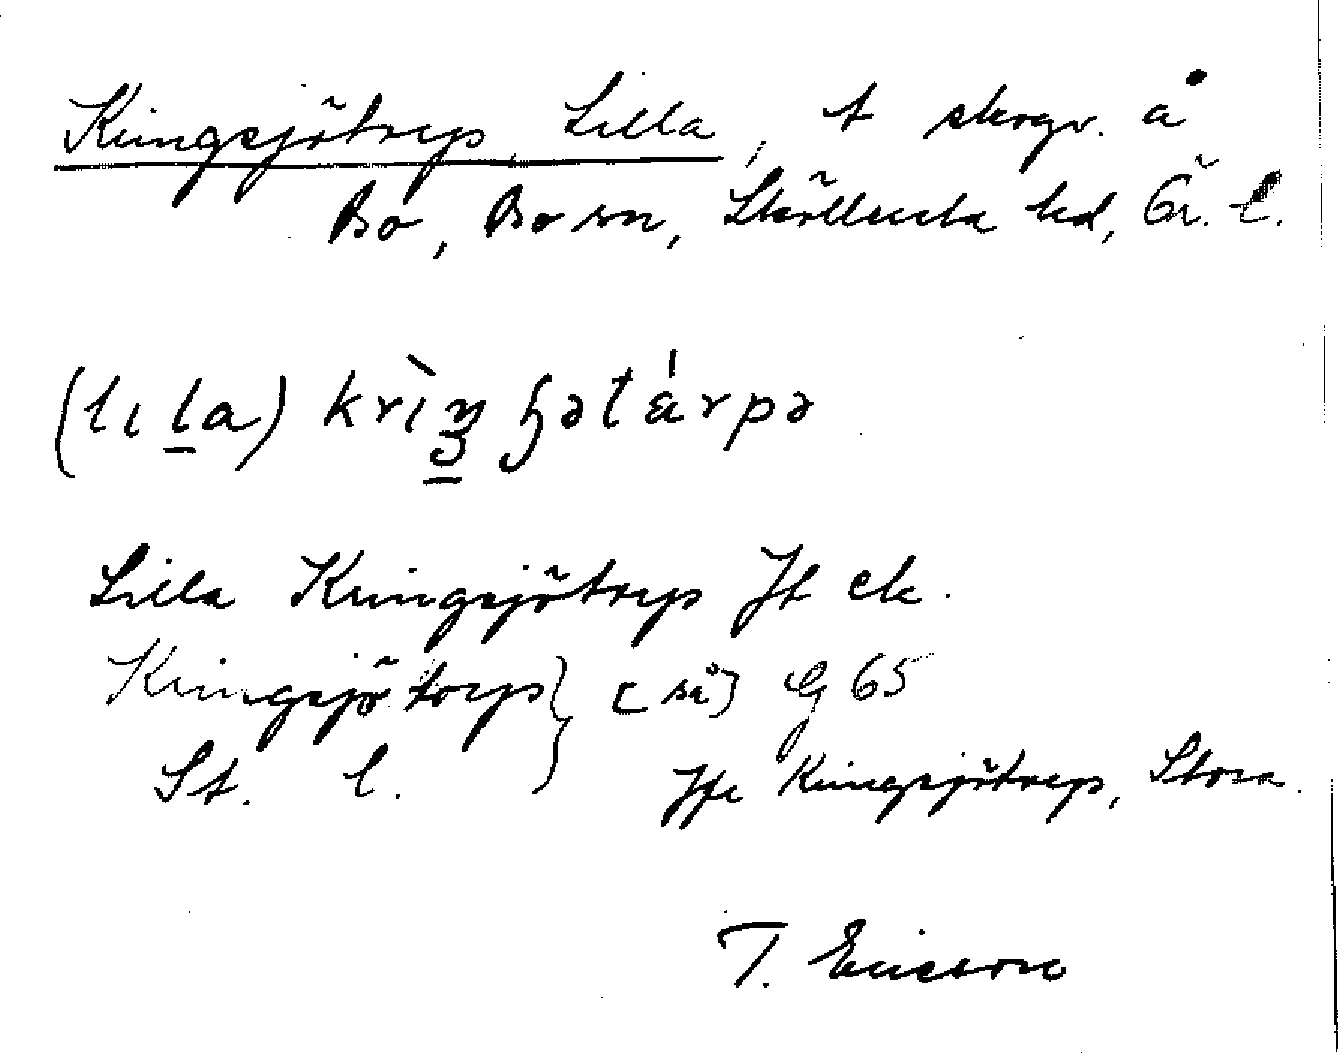 Kringsjötorp, Lilla, t skogv. å
Bo, Bo sn, Sköllersta hd, Ör. l.
(lıla) krìŋ ɧətárpə
Lilla Kringsjötorp Jt ek.
Kringsjötorp } [så] G 65
St. l.
Jfr Kringsjötorp, Stora.
T. Ericsson